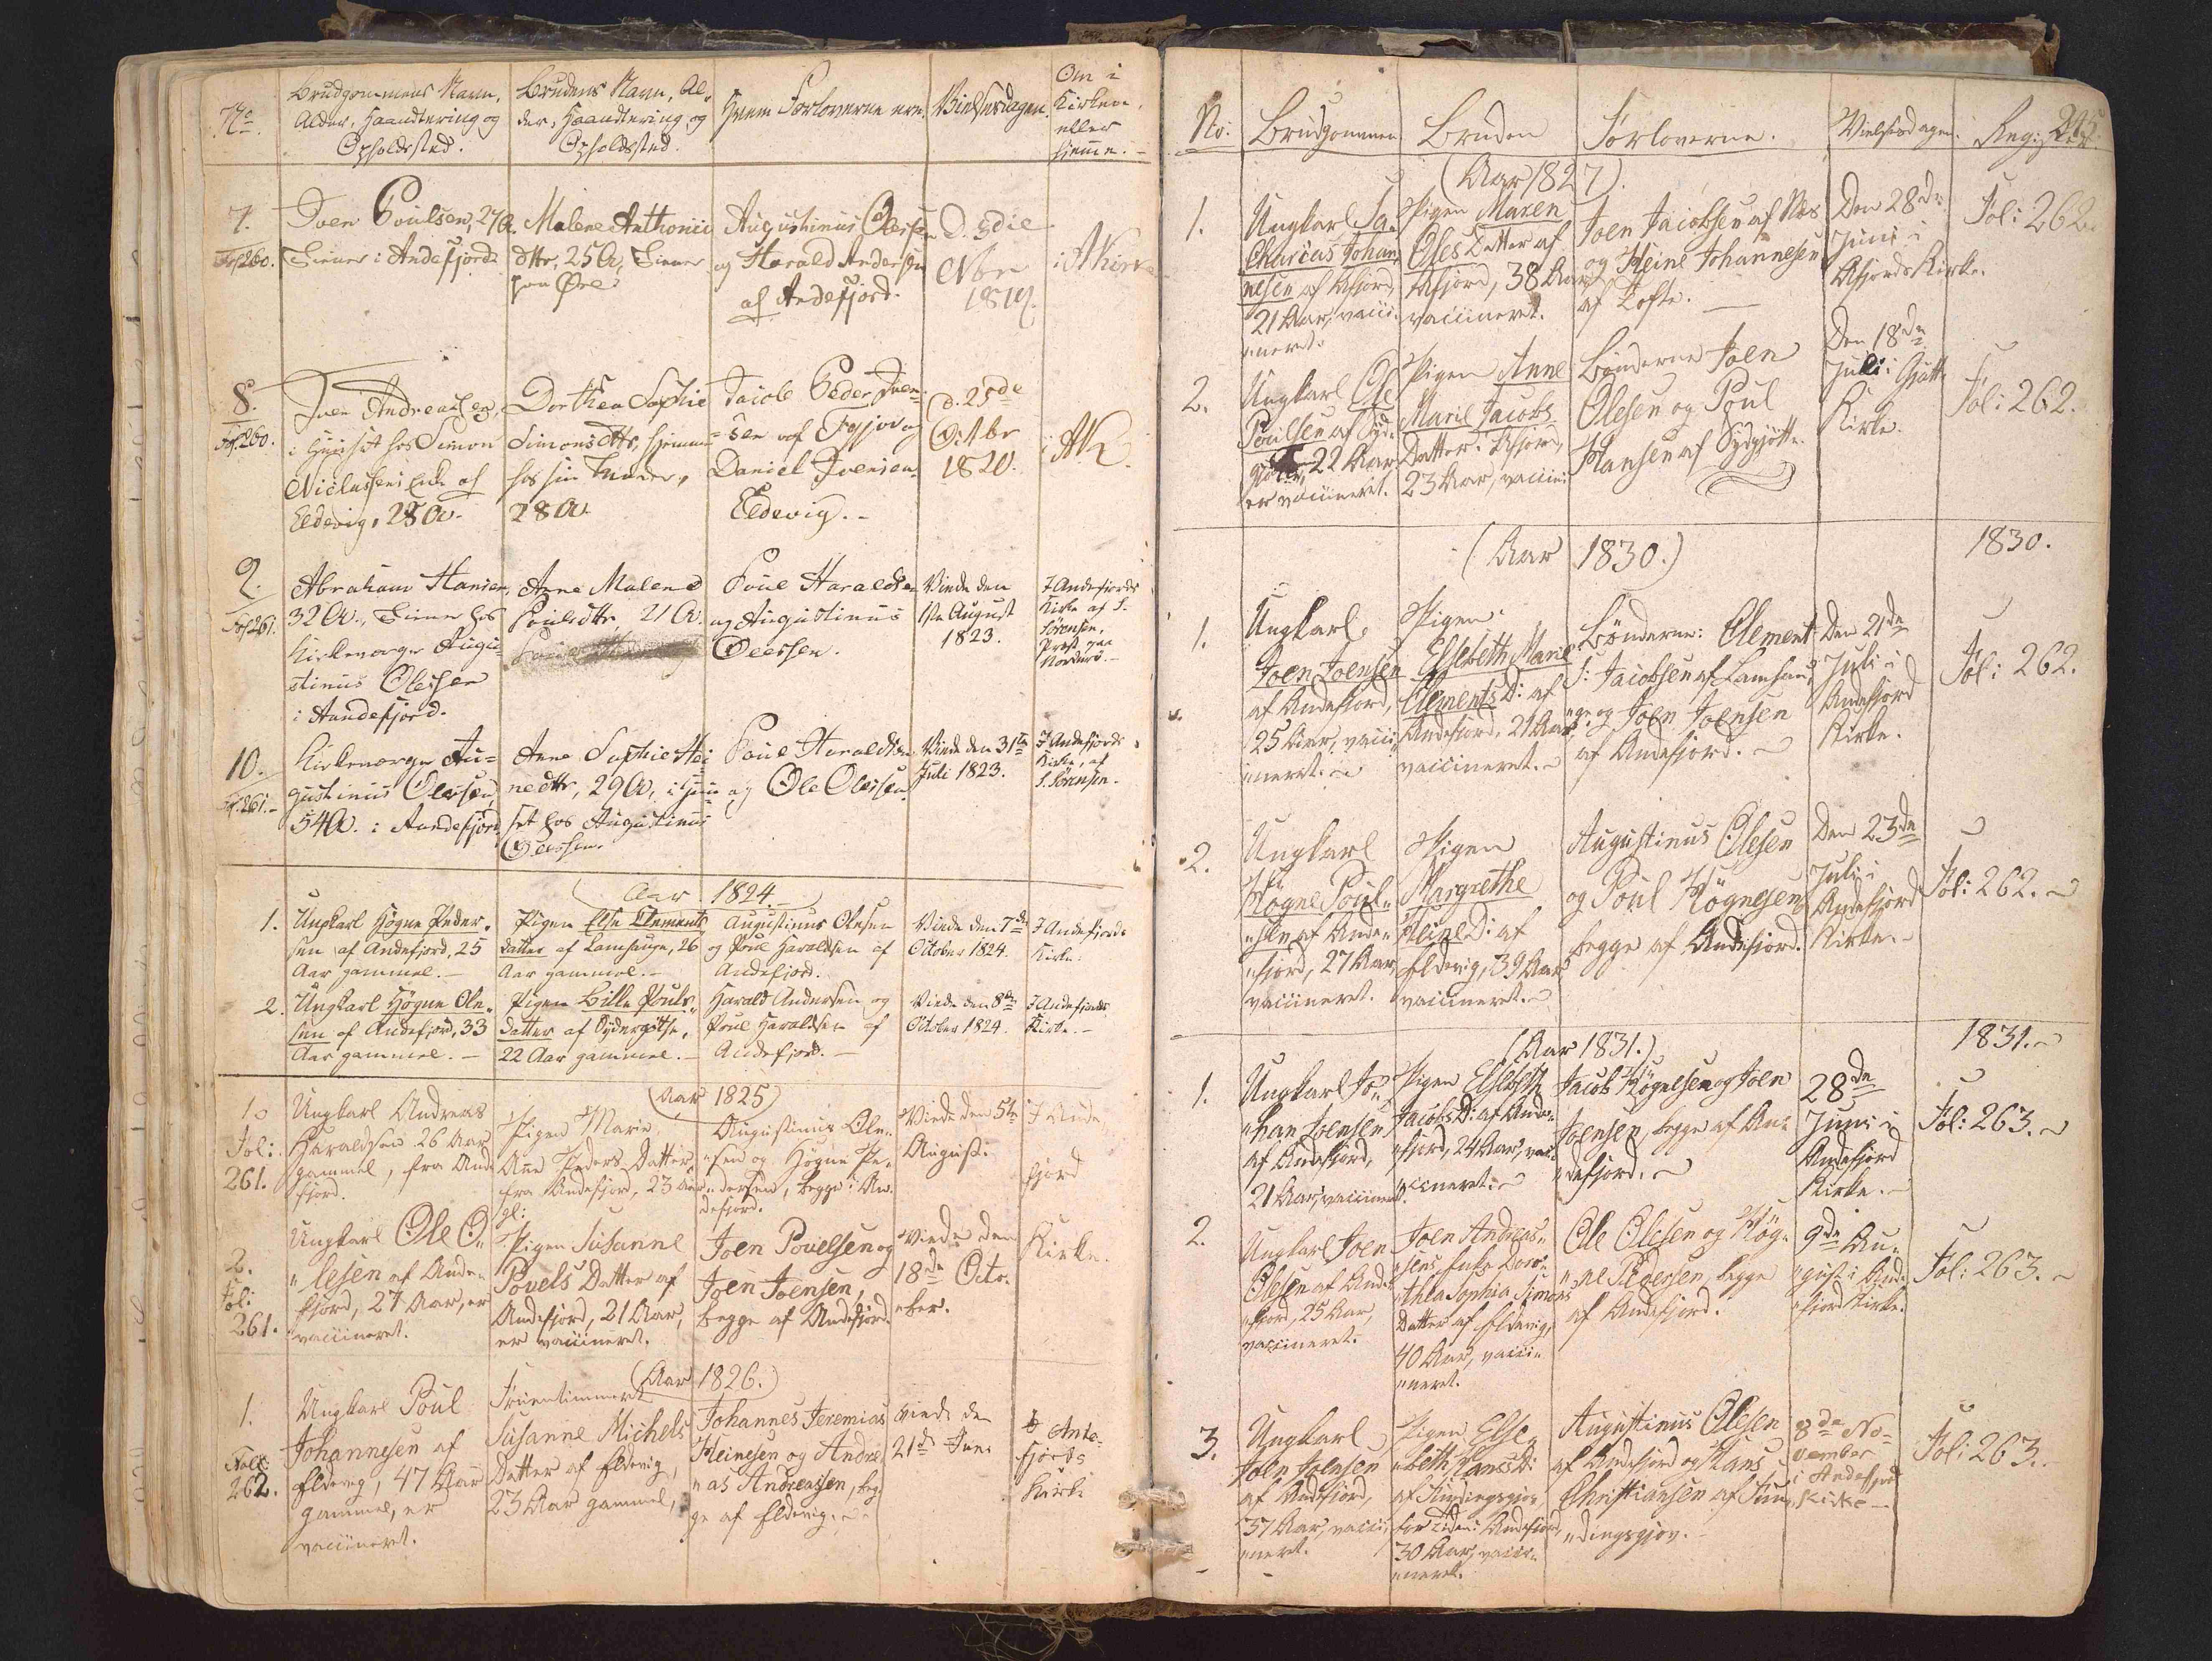 No.
Brudgommens Navn,
Alder, Haandtering og
Opholdssted.
Brudens Navn, Al-
der, Haandtering og
Opholdssted.
Hvem Forloverne ere.
Vielsesdagen.
Om i
Kirken
eller
hjemme.
7.
Fol 260.
Joen Poulsen, 27 A.
Tiener i Andefjord
Malene Anthonii
dttr, 25 A, Tiener
paa Øre
Augustinus Olessen
og Harald Andersen
af Andefjord.
D. 3die
Nbr
1819.
i AKirke
8.
Fol. 260.
Joen Andreasen,
i Huuset hos Simon
Niclassens Enke af
Eldevig, 28 A.
Dorthea Sophie
Simonsdttr, hjemme
hos sin Moder,
28 A.
Jacob Peder Joen-
sen af Fugjov og
Daniel Joensen
Eldevig.
D. 25de
Octbr
1820.
i AK.
9.
Fol 261.
Abraham Hansen,
32 A., Tiener hos
Kirkeværge Augu-
stinus Olessen
i Andefjord.
Anne Malene
Poulsdttr, 21 A.
Poul Haraldsen
og Augustinus
Olessen.
Viede den
1ste August
1823.
I Andefjords
Kirke af S.
Sørensen,
Præst paa
Norderø.
10.
Fol. 261.
Kirkeværge Au-
gustinus Olessen,
54 A. i Andefjord
Anne Sophie Hei-
nedttr, 29 A, i Huu-
set hos Augustinus
Olessen.
Poul Haraldsen
og Ole Olessen.
Viede den 31te
Juli 1823.
I Andefjords
Kirke, af
S. Sørensen.
Aar 1824.
1.
Ungkarl Høgne Peder-
sen af Andefjord, 25
Aar gammel.
Pigen Else Clements
datter af Lamhauge, 26
Aar gammel.
Augustinus Olesen
og Poul Haraldsen af
Andefjord.
Viede den 7de
October 1824.
I Andefjords
Kirke.
2.
Ungkarl Høgne Ole-
sen af Andefjord, 33
Aar gammel.
Pigen Bille Pouls-
datter af Sydergøthe,
22 Aar gammel.
Harald Andersen og
Poul Haraldsen af
Andefjord.
Viede den 8de
October 1824.
I Andefjords
Kirke.
Aar 1825
1.
Fol:
261.
Ungkarl Andreas
Haraldsen 26 Aar
gammel, fra Ande
fjord.
Pigen Marie
Ane Peders Datter,
fra Andefjord, 23 Aar
gl:
Augustinus Ole-
sen og Høgne Pe-
dersen, begge i An-
defjord.
Viede den 5te
August.
I Ande
fjord
2.
Fol:
261.
Ungkarl Ole O-
lesen af Ande-
fjord, 27 Aar, er
vaccineret.
Pigen Susanne
Povels Datter af
Andefjord, 21 Aar,
er vaccineret.
Joen Povelsen og
Joen Joensen,
begge af Andefjord.
Viede den
18de Octo-
ber.
Kirke.
(Aar 1826.)
1.
Foli:
262.
Ungkarl Poul
Johannesen af
Eldevig, 47 Aar
gammel, er
vaccineret.
Fruentimmeret
Susanne Michels
Datter af Eldevig,
23 Aar gammel,
Johannes Jeremias
Heinesen og Andre
as Andreasen, beg-
ge af Eldevig.
Viede de
21de Juni
I Ande-
fjords
Kirke
No:
Brudgommen
Bruden
Forloverne.
Vielsesdagen.
Reg:
245.
(Aar 1827).
1.
Ungkarl Sa-
charias Johan-
nesen af Afjord,
21 Aar, vacci-
neret.
Pigen Maren
Oles Datter af
Afjord, 38 Aar
vaccineret.
Joen Jacobsen af Næs
og Heine Johannesen
af Tofte.
Den 28de
Juni i
Afjords Kirke.
Fol: 262.
2.
Ungkarl Ole
Poulsen af Syd-
22 Aar
er vaccineret.
Pigen Anne
Marie Jacobs
Datter i Afjord,
23 Aar, vaccin:
Bønderne Joen
Olesen og Poul
Hansen af Sydgjøtte.
Den 18de
Juli i Gjøtte
Kirke.
Fol: 262.
(Aar 1830.)
1830.
1.
Ungkarl
Joen Joensen
af Andefjord,
25 Aar, vacci-
neret.
Pigen
Elsebeth Marie
Clements D: af
Andefjord, 21 Aar
vaccineret.
Bønderne: Clement
S: Jacobsen af Lamhau-
ge og Joen Joensen
af Andefjord.
Den 21de
Juli i
Andefjord
Kirke.
Fol: 262.
2.
Ungkarl
Høgne Poul-
sen af Ande-
fjord, 27 Aar,
vaccineret.
Pigen
Margrethe
Heine D: af
Eldevig, 39 Aar
vaccineret.
Augustinus Olesen
og Poul Høgnesen,
begge af Andefjord.
Den 23de
Juli i
Andefjord
Kirke.
Fol: 262.
(Aar 1831.)
1831.
1.
Ungkarl Jo-
han Joensen
af Andefjord,
21 Aar, vaccineret.
Pigen Elsebeth
Jacobs D: af Ande-
fjord, 24 Aar, vac-
cineret.
Jacob Høgnesen og Joen
Joensen, begge af An-
defjord.
28de
Juni i
Andefjord
Kirke.
Fol: 263.
2.
Ungkarl Joen
Olesen af Ande
fjord, 25 Aar,
vaccineret.
Joen Andreas-
sens Enke Doro-
thea Sophia Simons
Datter af Eldevig,
40 Aar, vacci-
neret.
Ole Olesen og Høg-
ne Pedersen, begge
af Andefjord.
9de Au-
gust i Ande
fjord Kirke.
Fol: 263.
3.
Ungkarl
Joen Joensen
af Andefjord,
37 Aar, vacci-
neret.
Pigen Else-
beth Hans D:
af Fundingsgjov,
for Tiden i Andefjord,
30 Aar, vacci-
neret.
Augustinus Olesen
af Andefjord og Hans
Christiansen af Fun-
dingsgjov.
8de No-
vember
i Andefjord
Kirke
Fol: 263.